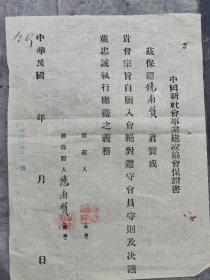 中國新社會事業建設協會保證書
茲保證饒南質君贊成
貴會宗旨自願入會絕對遵守會員守則及決議
並忠誠執行應盡之義務
保證人
被保證人 饒南質
中華民國 年 月 日
129